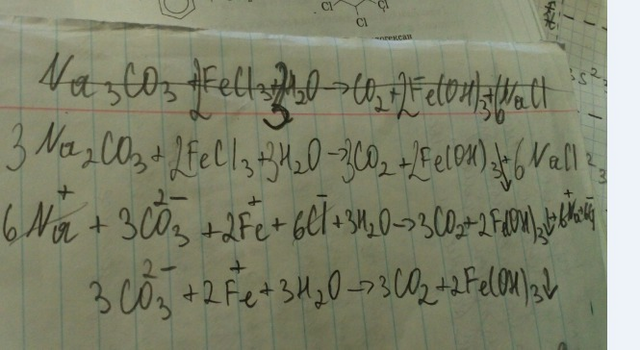 Cl Cl
Cl
Na₃CO₃ + 2FeCl₃ + 3H₂O → CO₂ + 2Fe(OH)₃ + 6NaCl
3Na₂CO₃ + 2FeCl₃ + 3H₂O → 3CO₂ + 2Fe(OH)₃↓ + 6NaCl
6Na⁺ + 3CO₃²⁻ + 2Fe⁺ + 6Cl⁻ + 3H₂O → 3CO₂ + 2Fe(OH)₃↓ + 6Na⁺ + 6Cl⁻
3CO₃²⁻ + 2Fe⁺ + 3H₂O → 3CO₂ + 2Fe(OH)₃↓